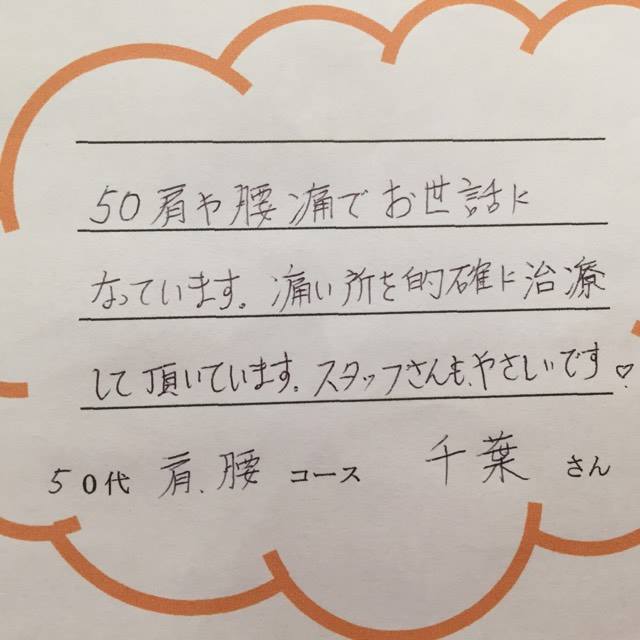 50肩や腰痛でお世話に
なっています。痛い所を的確に治療
して頂いています。スタッフさんも、やさしいです♡
50代 肩、腰 コース 千葉 さん